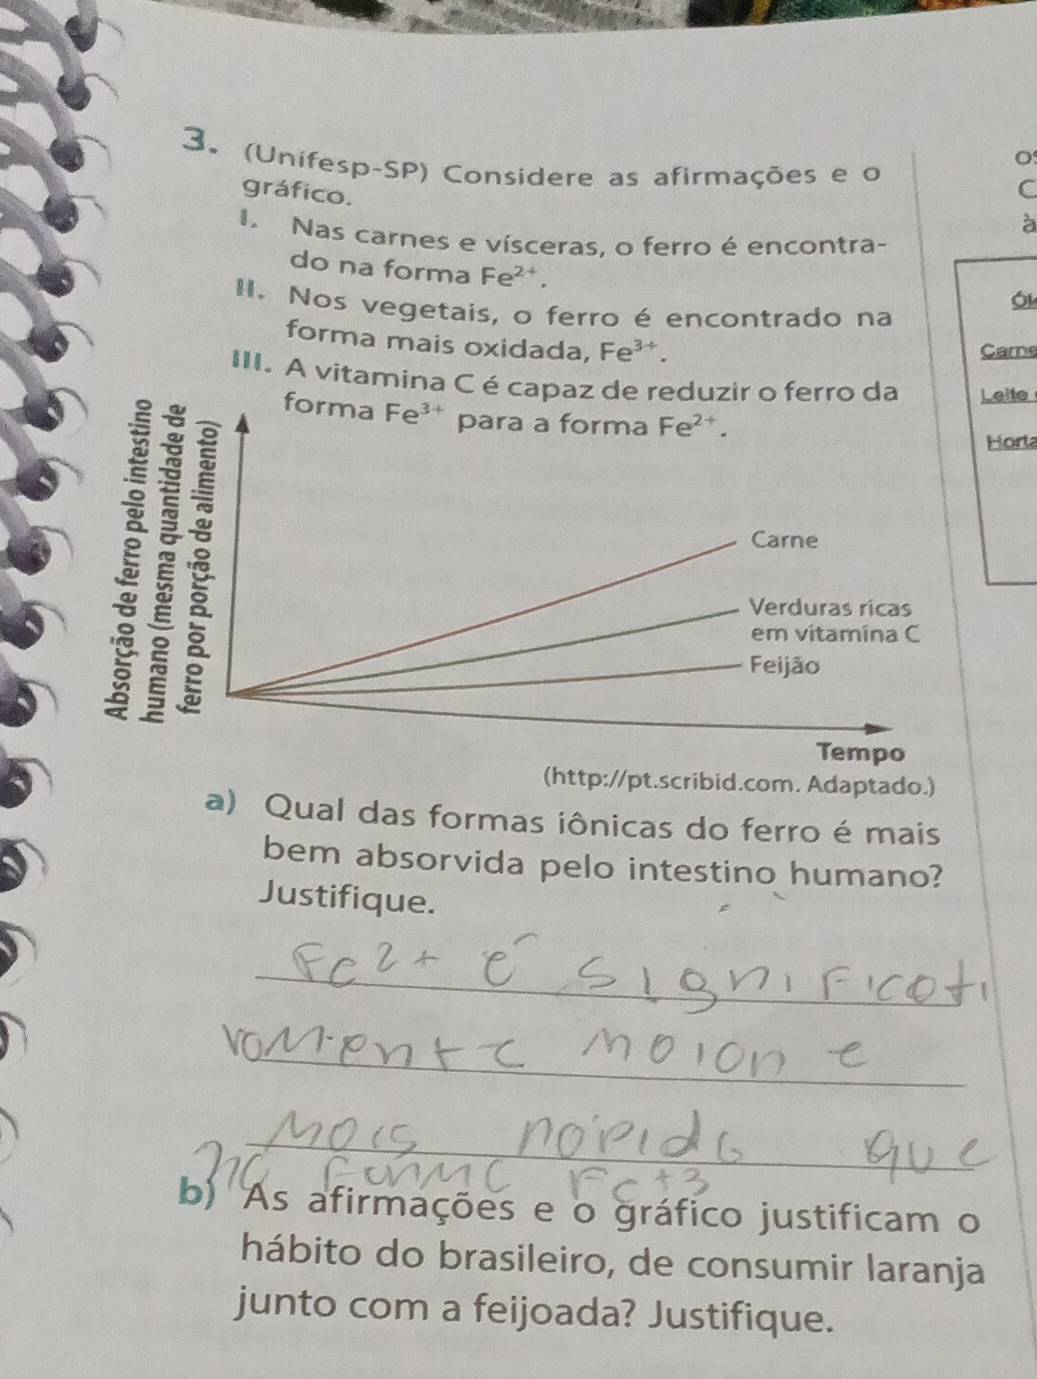 3. (Unifesp-SP) Considere as afirmações e o
gráfico.
I. Nas carnes e vísceras, o ferro é encontra-
do na forma Fe²⁺.
II. Nos vegetais, o ferro é encontrado na
forma mais oxidada, Fe³⁺.
III. A vitamina C é capaz de reduzir o ferro da
forma Fe³⁺ para a forma Fe²⁺.
Absorção de ferro pelo intestino
humano (mesma quantidade de
ferro por porção de alimento)
Carne
Verduras ricas
em vitamina C
Feijão
Tempo
(http://pt.scribid.com. Adaptado.)
a) Qual das formas iônicas do ferro é mais
bem absorvida pelo intestino humano?
Justifique.
Fe2+ é significati
vamente maior e
mais rápida que
na forma Fe+3
b) As afirmações e o gráfico justificam o
hábito do brasileiro, de consumir laranja
junto com a feijoada? Justifique.
à
Carne
Leite
Horta